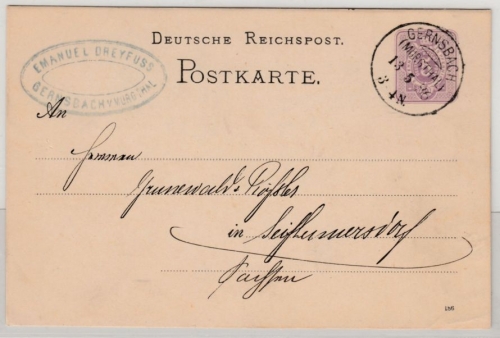 EMANUEL DREYFUSS
GERNSBACH/MURGTHAL
DEUTSCHE REICHSPOST.
POSTKARTE.
GERNSBACH
(MURGTHAL)
13 5
3-4N.
An
Herrren
Grunewald &
in Seifhennersdorf
Sachsen
186